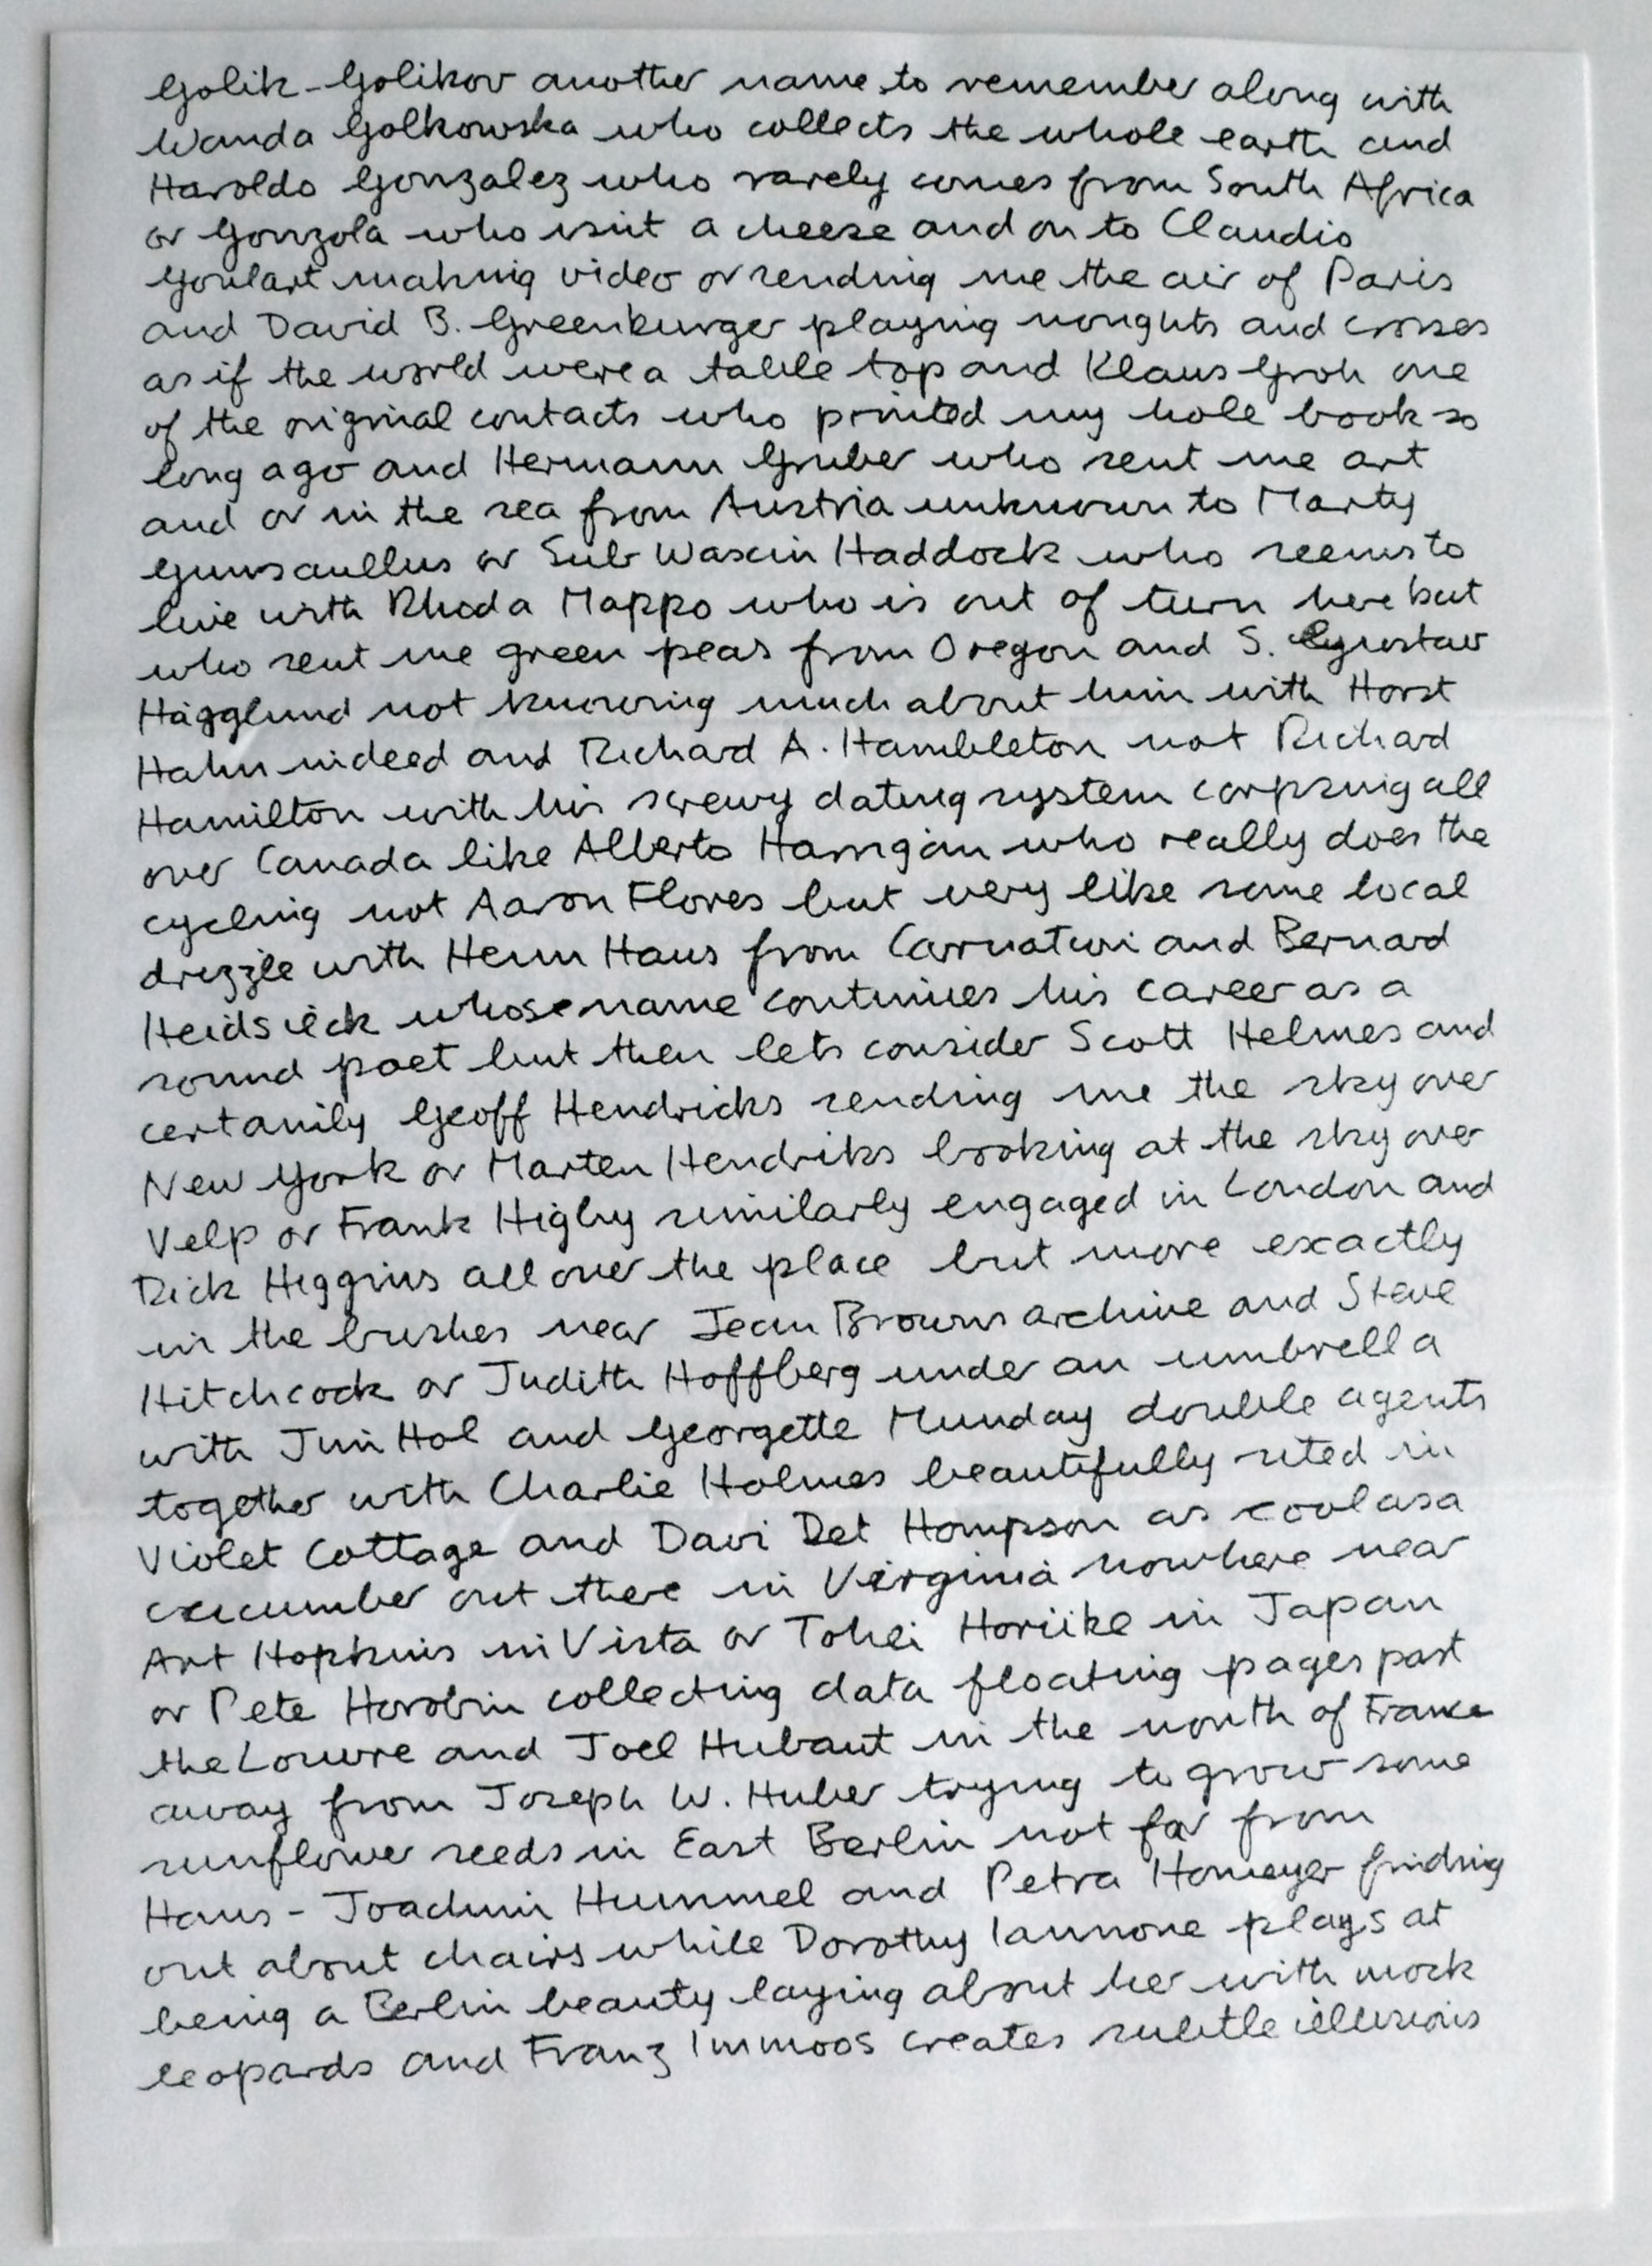 Golik-Golikov another name to remember along with
Wanda Golkowska who collects the whole earth and
Haroldo Gonzalez who rarely comes from South Africa
or Gonzola who isnt a cheese and on to Claudio
Goulart making video or sending me the air of Paris
and David B. Greenburger playing noughts and crosses
as if the world were a table top and Klaus Groh one
of the original contacts who printed my hole book so
long ago and Hermann Gruber who sent me art
and or in the sea from Austria unknown to Marty
Gunsaullus or Sub Wascin Haddock who seems to
live with Rhoda Mappo who is out of turn here but
who sent me green peas from Oregon and S. Gustav
Hägglund not knowing much about him with Horst
Hahn indeed and Richard A. Hambleton not Richard
Hamilton with his screwy dating system corpsing all
over Canada like Alberto Harrigan who really does the
cycling not Aaron Flores but very like some local
drizzle with Henn Haus from Carnatwi and Bernard
Heidsieck whose name continues his career as a
sound poet but then lets consider Scott Helmes and
certainly Geoff Hendricks sending me the sky over
New York or Marten Hendriks looking at the sky over
Velp or Frank Higby similarly engaged in London and
Dick Higgins all over the place but more exactly
in the bushes near Jean Browns archive and Steve
Hitchcock or Judith Hoffberg under an umbrella
with Jim Hol and Georgette Munday double agents
together with Charlie Holmes beautifully sited in
Violet Cottage and Davi Det Hompson as cool as a
cucumber out there in Virginia nowhere near
Art Hopkins in Vista or Tohei Horiike in Japan
or Pete Horobin collecting data floating pages past
the Louvre and Joel Hubaut in the north of France
away from Joseph W. Huber trying to grow some
sunflower seeds in East Berlin not far from
Hans-Joachim Hummel and Petra Homeyer finding
out about chairs while Dorothy Iannone plays at
being a Berlin beauty laying about her with mock
leopards and Franz Immoos creates subtle illusions